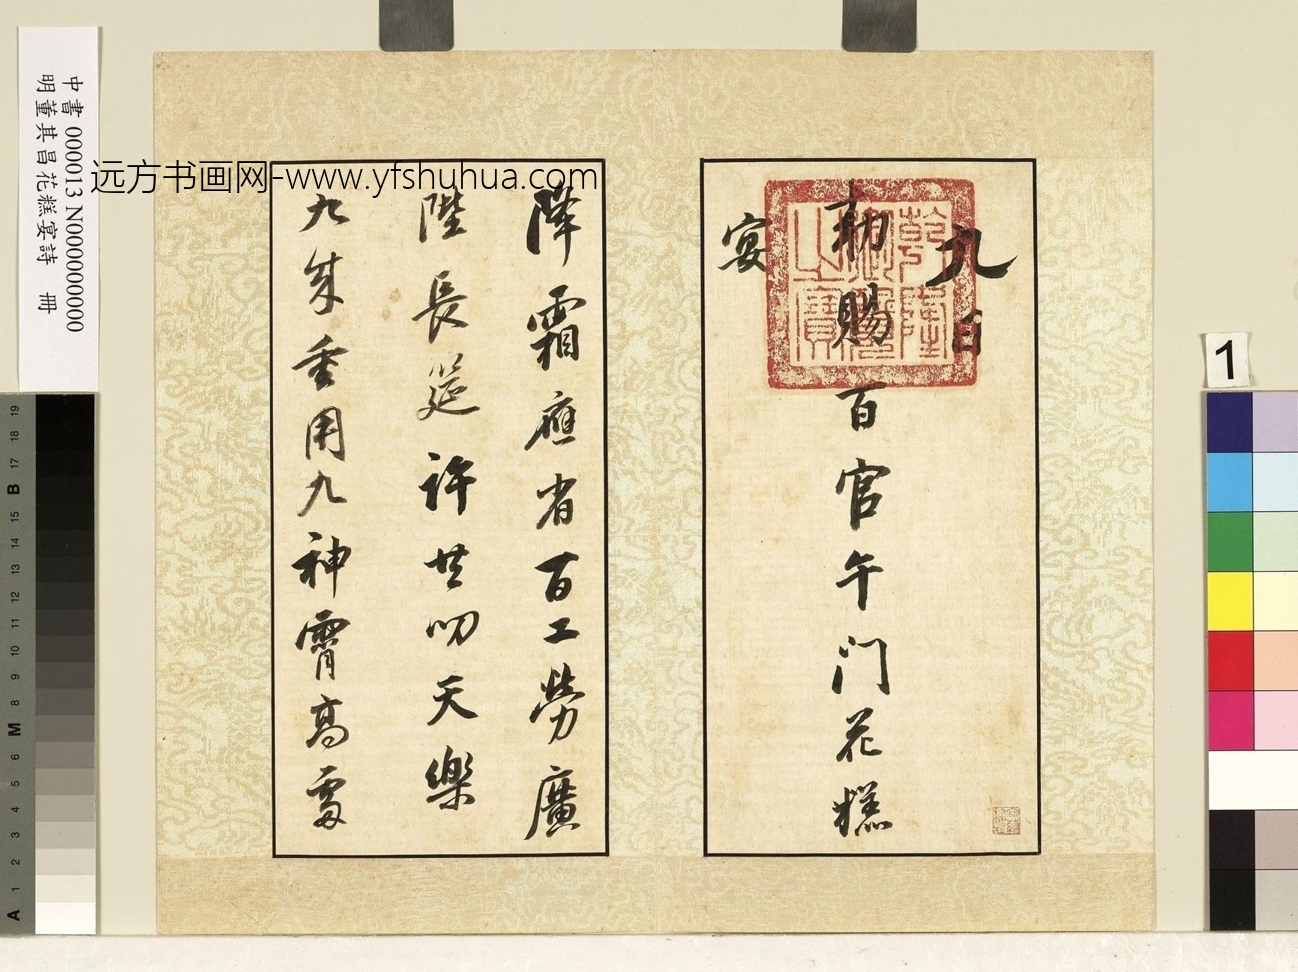 九日
勅賜百官午門花糕
宴
降霜應省百工勞廣
陛長筵許共叨天樂
九成重用九神霄高處
乾隆御覽之寶
中書 000013 N000000000
明董其昌花糕宴詩 冊
远方书画网-www.yfshuhua.com
1
19
18
17
B
15
14
13
12
11
10
9
8
M
6
5
4
3
2
1
A